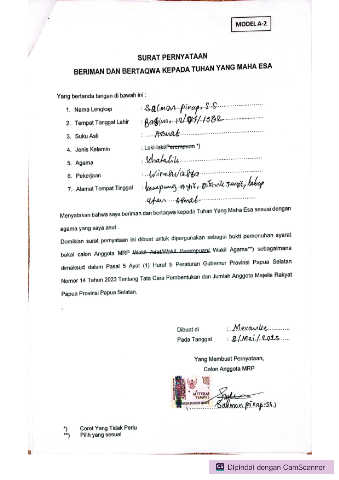 MODEL A-2
SURAT PERNYATAAN
BERIMAN DAN BERTAQWA KEPADA TUHAN YANG MAHA ESA
Yang bertanda tangan di bawah ini :
1. Nama Lengkap : Salmon Pirap, S.S
2. Tempat Tanggal Lahir :
3. Suku Asli : Asmat
4. Jenis Kelamin : Laki-laki/Perempuan *)
5. Agama : Khatolik
6. Pekerjaan : Wiraswasta
7. Alamat Tempat Tinggal : Kampung
Menyatakan bahwa saya beriman dan bertaqwa kepada Tuhan Yang Maha Esa sesuai dengan
agama yang saya anut.
Demikian surat pernyataan ini dibuat untuk dipergunakan sebagai bukti pemenuhan syarat
bakal calon Anggota MRP Wakil Adat/Wakil Perempuan/ Wakil Agama**) sebagaimana
dimaksud dalam Pasal 5 Ayat (1) Huruf b Peraturan Gubernur Provinsi Papua Selatan
Nomor 14 Tahun 2023 Tentang Tata Cara Pembentukan dan Jumlah Anggota Majelis Rakyat
Papua Provinsi Papua Selatan.
Dibuat di : Merauke
Pada Tanggal :
Yang Membuat Pernyataan,
Calon Anggota MRP
METERAI
TEMPEL
Salmon Pirap, SS.)
*) Coret Yang Tidak Perlu
**) Pilih yang sesuai
CS Dipindai dengan CamScanner